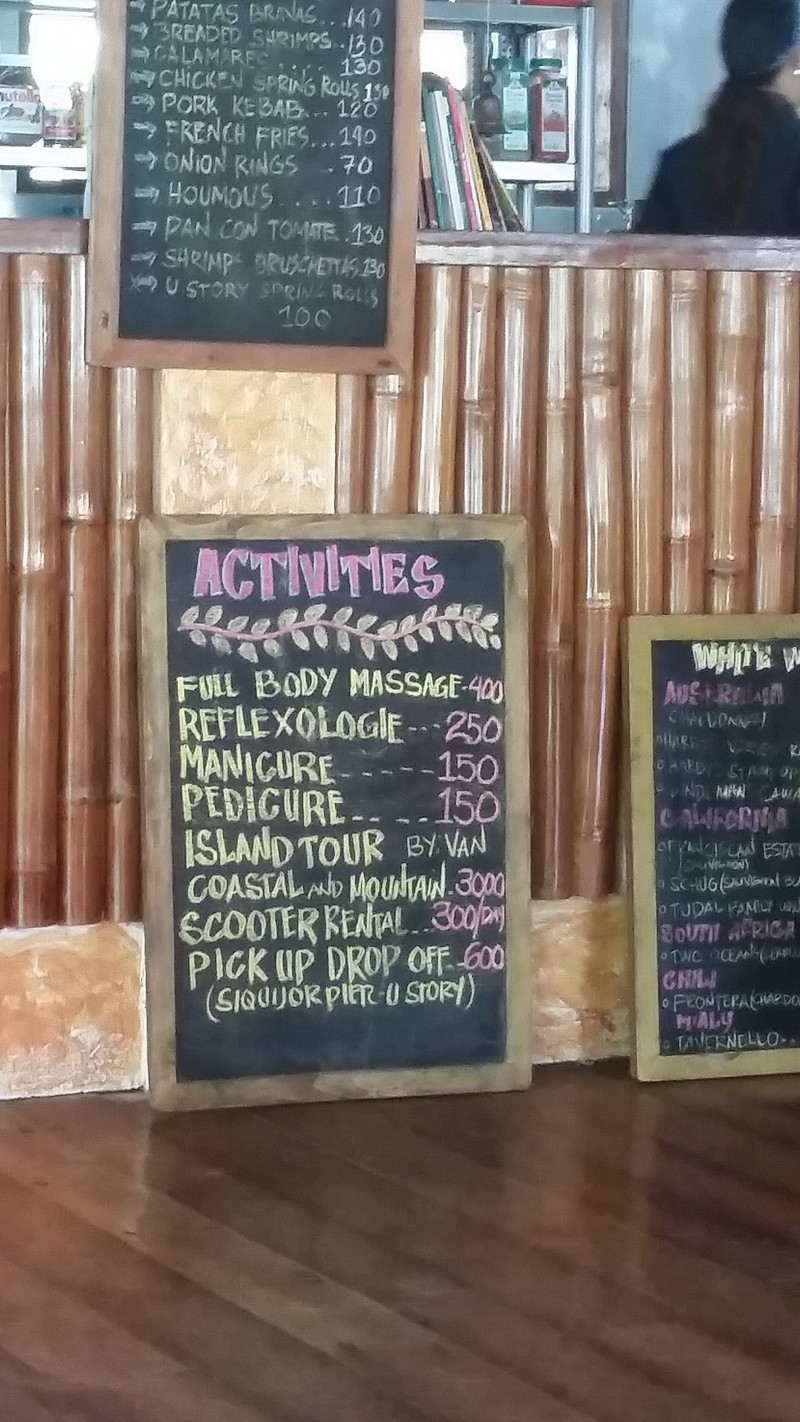 PATATAS BRAVAS...140
BREADED SHRIMPS.130
CALAMARES.....130
CHICKEN SPRING ROLLS 130
PORK KEBAB...120
FRENCH FRIES...140
ONION RINGS .70
HOUMOUS....110
PAN CON TOMATE.130
SHRIMPS BRUSCHETTAS.130
U STORY SPRING ROLLS
100
nutella
ACTIVITIES
FULL BODY MASSAGE-400
REFLEXOLOGIE---250
MANICURE-----150
PEDICURE....150
ISLAND TOUR BY VAN
COASTAL AND MOUNTAIN.3000
SCOOTER RENTAL...300/DAY
PICK UP DROP OFF..600
(SIQUIJOR PIER-U STORY)
WHITE W
AUSTRALIA
CHARDONNAY
HARDY
HARDY STAMP OF
CALIFORNIA
FRANCISCAN ESTATE
SCHUG (SAUVIGNON
TUDAL FAMILY
SOUTH AFRICA
TWO OCEANS
CHILI
FRONTERA (CHARDO
ITALY
TAVERNELLO..